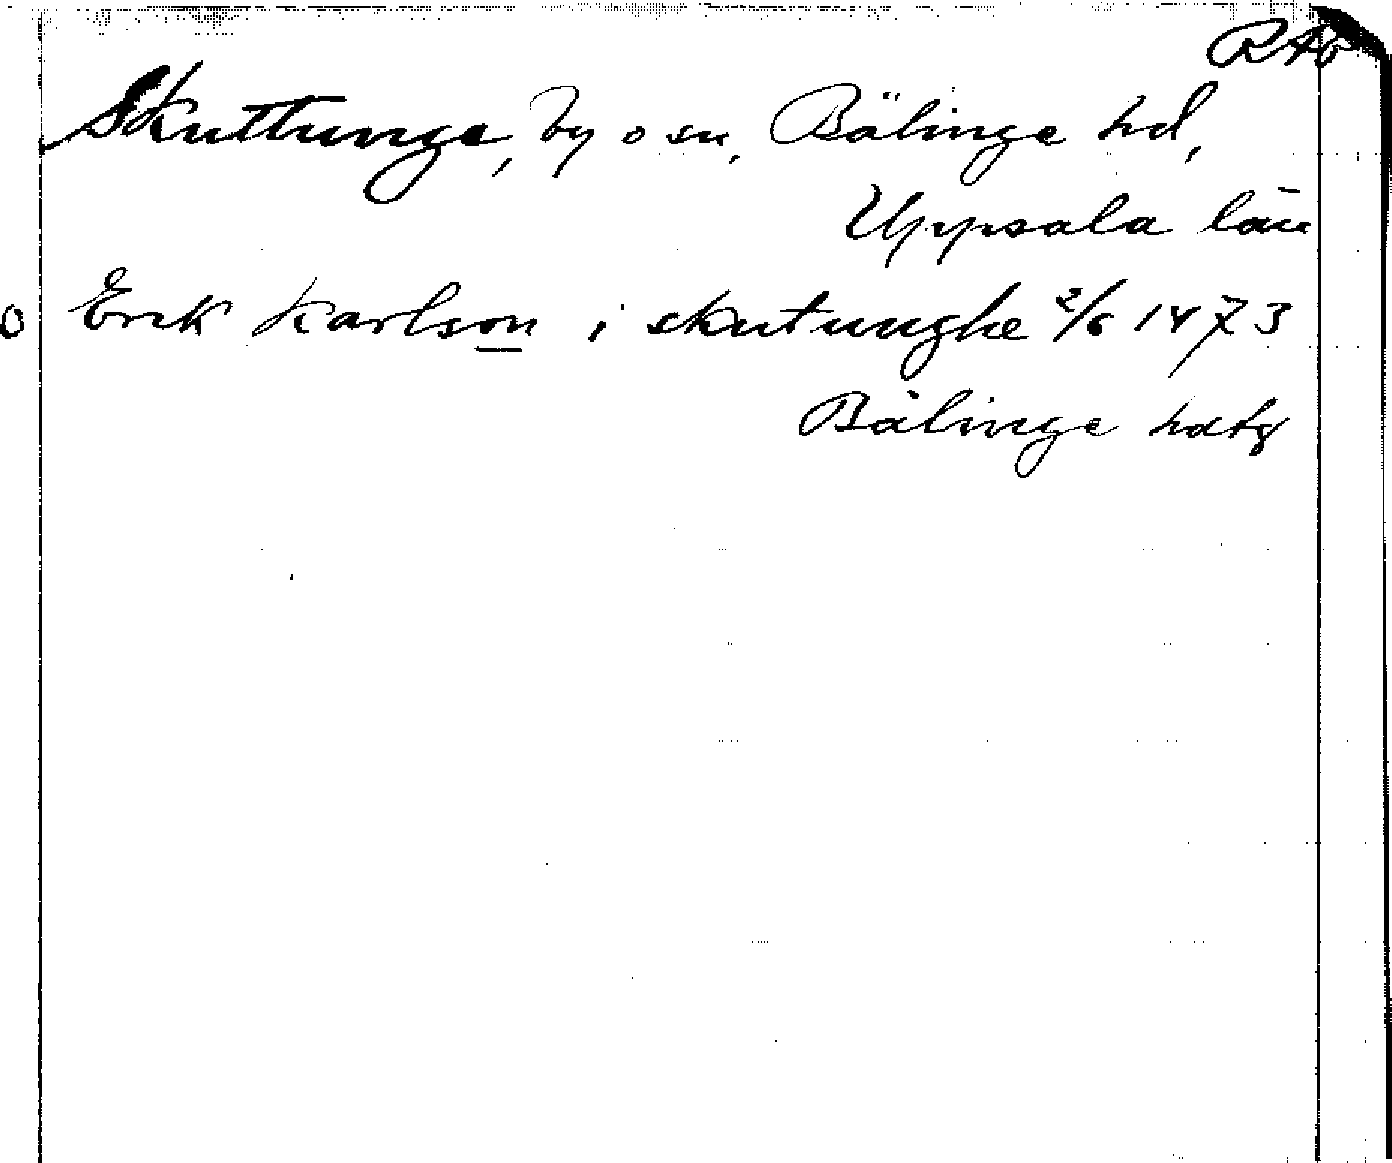 RAO
Skuttunge, by o sn, Bälinge hd,
Uppsala län
o Erik Karlson i skutunghe 2/6 1473
Bälinge hdtg